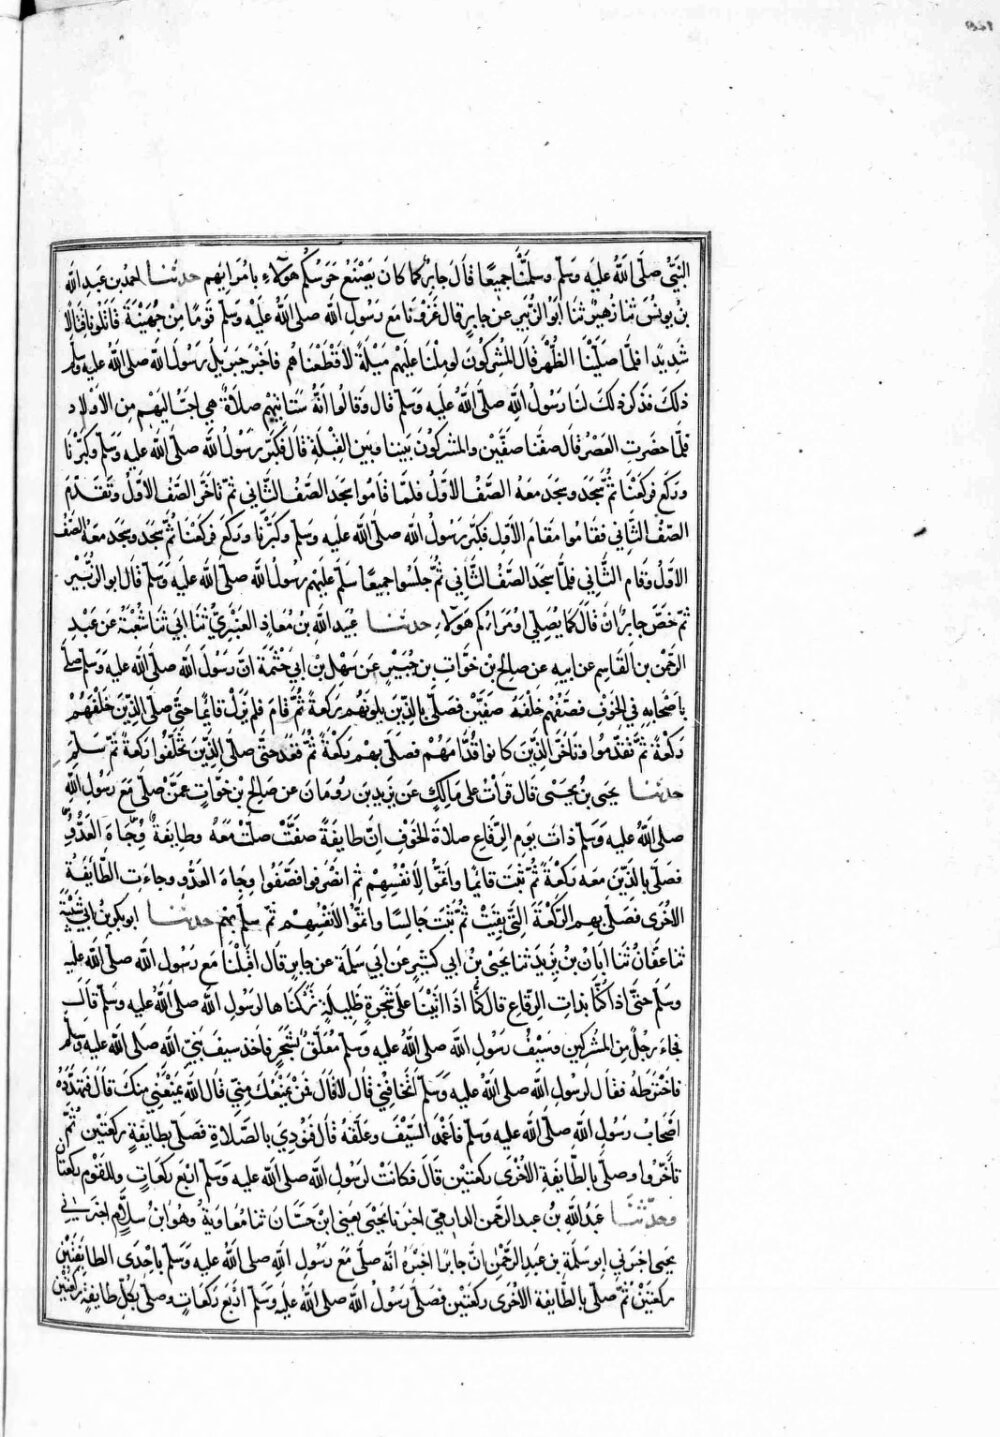 النبي صلى الله عليه وسلم وسلمنا جميعا قال جابر كما كان يصنع حرسكم هولاء بامرايهم حدثنا احمد بن عبد الله
بن يونس ثنا زهير ثنا ابو الزبير عن جابر قال غزونا مع رسول الله صلى الله عليه وسلم قوما من جهينة فقاتلونا قتالا
شديدا فلما صلينا الظهر قال المشركون لو ملنا عليهم ميلة لاقتطعناهم فاخبر جبريل رسول الله صلى الله عليه وسلم
ذلك فذكر ذلك لنا رسول الله صلى الله عليه وسلم قال وقالوا انه ستاتيهم صلاة هي احب اليهم من الاولاد
فلما حضرت العصر قال صفنا صفين والمشركون بيننا وبين القبلة قال فكبر رسول الله صلى الله عليه وسلم وكبرنا
وركع فركعنا ثم سجد وسجد معه الصف الاول فلما قاموا سجد الصف الثاني ثم تاخر الصف الاول وتقدم
الصف الثاني فقاموا مقام الاول فكبر رسول الله صلى الله عليه وسلم وكبرنا وركع فركعنا ثم سجد وسجد معه الصف
الاول وقام الثاني فلما سجد الصف الثاني ثم جلسوا جميعا سلم عليهم رسول الله صلى الله عليه وسلم قال ابو الزبير
ثم خص جابر ان قال كما يصلي امراؤكم هولاء حدثنا عبيد الله بن معاذ العنبري ثنا ابي ثنا شعبة عن عبد
الرحمن بن القاسم عن ابيه عن صالح بن خوات بن جبير عن سهل بن ابي حثمة ان رسول الله صلى الله عليه وسلم صلى
باصحابه في الخوف فصفهم خلفه صفين فصلى بالذين يلونهم ركعة ثم قام فلم يزل قائما حتى صلى الذين خلفهم
ركعة ثم تقدموا وتاخر الذين كانوا قدامهم فصلى بهم ركعة ثم قعد حتى صلى الذين تخلفوا ركعة ثم سلم
حدثنا يحيى بن يحيى قال قرات على مالك عن يزيد بن رومان عن صالح بن خوات عمن صلى مع رسول الله
صلى الله عليه وسلم ذات يوم الرقاع صلاة الخوف ان طايفة صفت صلت معه وطايفة وجاه العدو
فصلى بالذين معه ركعة ثم ثبت قائما واتموا لانفسهم ثم انصرفوا فصفوا وجاه العدو وجاءت الطايفة
الاخرى فصلى بهم الركعة التي بقيت ثم ثبت جالسا واتموا لانفسهم ثم سلم بهم حدثنا ابو بكر بن ابي شيبة
ثنا عفان ثنا ابان بن يزيد ثنا يحيى بن ابي كثير عن ابي سلمة عن جابر قال اقبلنا مع رسول الله صلى الله عليه
وسلم حتى اذا كنا بذات الرقاع قال كنا اذا اتينا على شجرة ظليلة تركناها لرسول الله صلى الله عليه وسلم قال
فجاء رجل من المشركين وسيف رسول الله صلى الله عليه وسلم معلق بشجر فاخذ سيف نبي الله صلى الله عليه وسلم
فاخترطه فقال لرسول الله صلى الله عليه وسلم اتخافني قال لا قال فمن يمنعك مني قال الله يمنعني منك قال فتهدده
اصحاب رسول الله صلى الله عليه وسلم فاغمد السيف وعلقه قال فنودي بالصلاة فصلى بطايفة ركعتين ثم
تأخروا وصلى بالطايفة الاخرى ركعتين قال فكانت لرسول الله صلى الله عليه وسلم اربع ركعات وللقوم ركعتان
وحدثنا عبد الله بن عبد الرحمن الدارمي اخبرنا يحيى يعني ابن حسان ثنا معاوية وهو ابن سلام اخبرني
يحيى اخبرني ابو سلمة بن عبد الرحمن ان جابرا اخبره انه صلى مع رسول الله صلى الله عليه وسلم باحدى الطايفتين
ركعتين ثم صلى بالطايفة الاخرى ركعتين فصلى رسول الله صلى الله عليه وسلم اربع ركعات وصلى بكل طايفة ركعتين